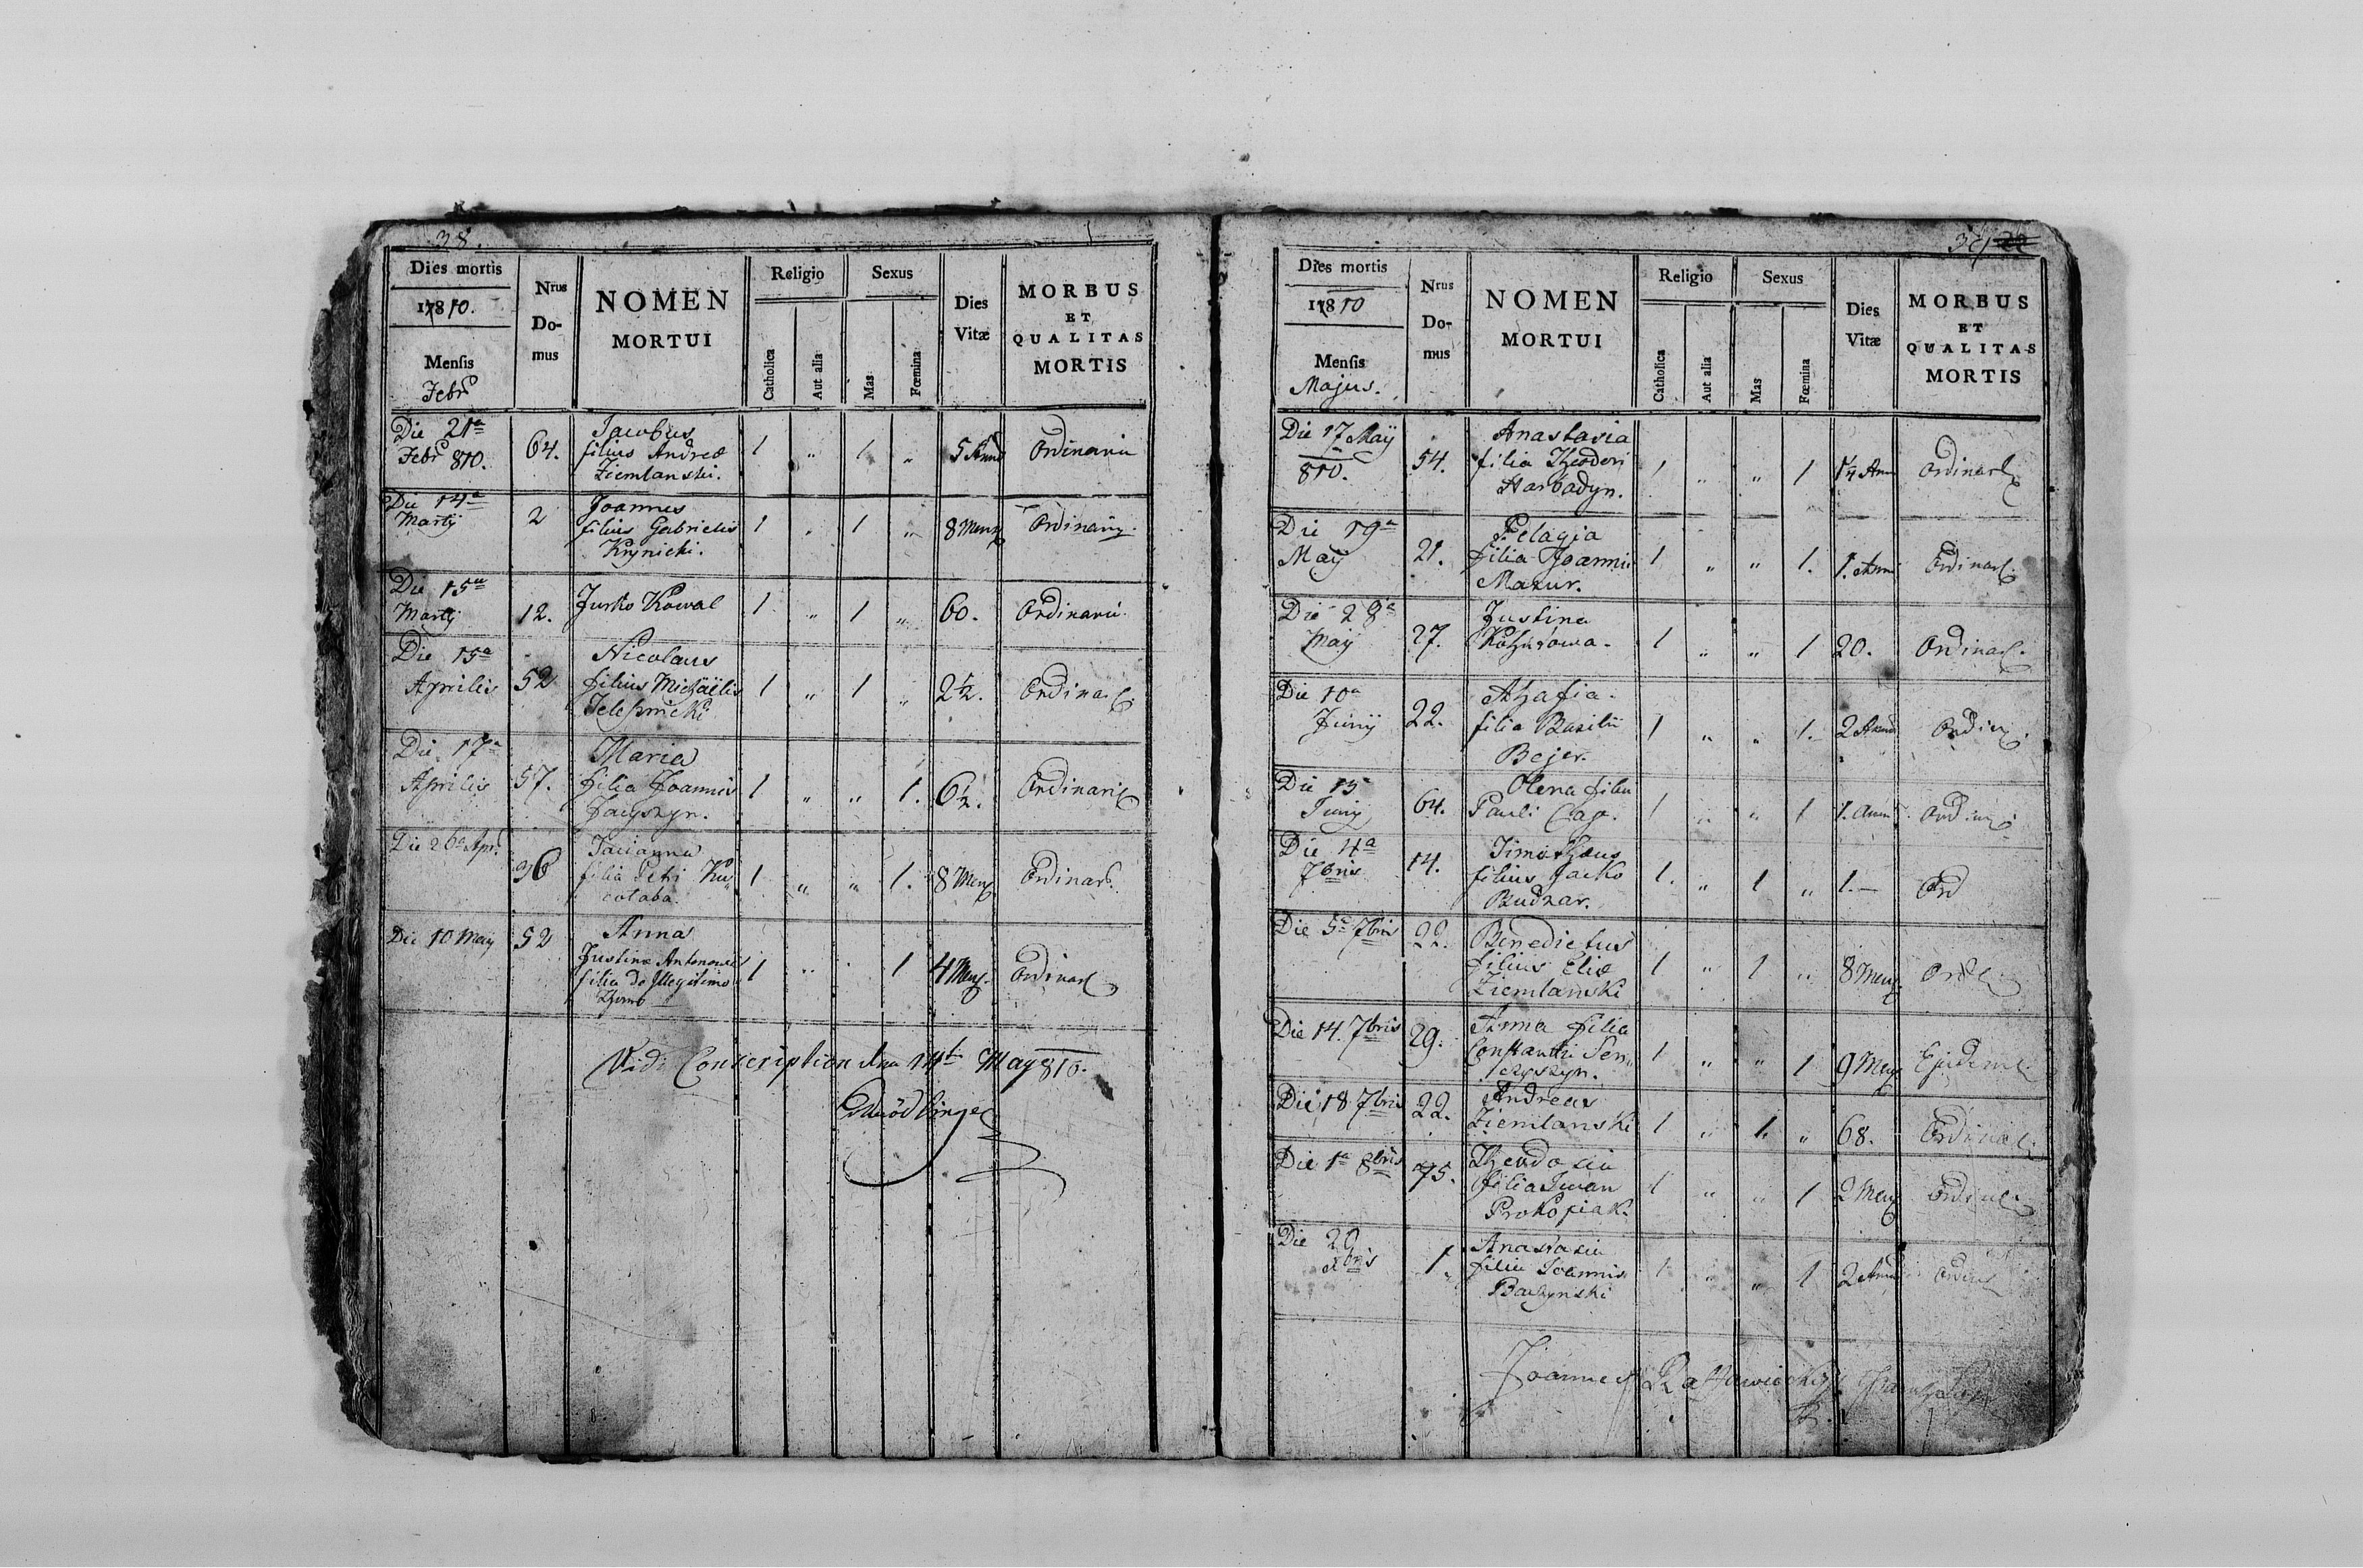 38.
Dies mortis
1810.
Mensis
Febr
Nrus
Do-
mus
NOMEN
MORTUI
Religio
Catholica
Aut alia
Sexus
Mas
Fœmina
Dies
Vitæ
MORBUS
ET
QUALITAS
MORTIS
Die 21a
Febr 810.
64.
Jacobus
filius Andreæ
Ziemlanski.
1 „ 1 „
5 Ann
Ordinaria
Die 14a
Martij
2
Joannes
filius Gabrielis
Krynicki.
1 „ 1 „
8 Mens
Ordinaria
Die 15a
Martij
12.
Jurko Kowal
1 „ 1 „
60.
Ordinaria
Die 15a
Aprilis
52
Nicolaus
filius Michaelis
1 „ 1 „
2½.
Ordinar
Die 17a
Aprilis
57.
Maria
filia Joannis
Jacyszyn.
1 „ „ 1.
6½.
Ordinari
Die 26a Apr.
96
Tacianna
filia Petri Ku
colaba.
1 „ „ 1.
8 Mens
Ordinar
Die 10 Maij
52
Anna
Justinæ
filia de Illegitimo
Thoro
1 „ 1
4 Mens.
Ordinar
Vidi Conscription den 14t May 810.
39 22
Dies mortis
1810
Mensis
Majus.
Nrus
Do-
mus
NOMEN
MORTUI
Religio
Catholica
Aut alia
Sexus
Mas
Fœmina
Dies
Vitæ
MORBUS
ET
QUALITAS
MORTIS
Die 17 Maij
810.
54.
Anastasia
filia Theodori
Harbadyn.
1 „ „ 1
Ann
Ordinar
Die 19a
Maij
21.
Pelagia
filia Joannis
Mazur.
1 „ „ 1.
1. Anni
Ordinar.
Die 28a
Maij
27.
Justina
1 „ „ 1
20.
Ordinar.
Die 10a
Junij
22.
Ahafia.
filia Basilii
Bejer.
1 „ „ 1.
2 Anno
Ordin.
Die 15a
Junij
64.
Olena filia
Pauli Cap.
1 „ „ 1
1. Anni
Ordin
Die 4a
7bris
14.
Timothæus
filius Jacko
Rudnar.
1. „ 1 „
1.—
Ord
Die 5a 7bris
22.
Benedictus
filius Eliæ
Ziemlanski
1 „ 1 „
8 Mens.
Ord
Die 14. 7bris
29.
Anna filia
Constantii Sen
1 „ „ 1
9 Mens
Ejusdem
Die 18 7bris
22.
Andreas
Ziemlanski
1 „ 1. „
68.
Ordinar
Die 1a 8bris
75.
Theodosia
filia Iwan
Prokopiak.
1 „ „ 1
2 Mens
Ordin
Die 29
Xbris
1.
Anastasia
filia Joannis
Baczynski
1 „ „ 1
2 Anno
Ordin
Joannes